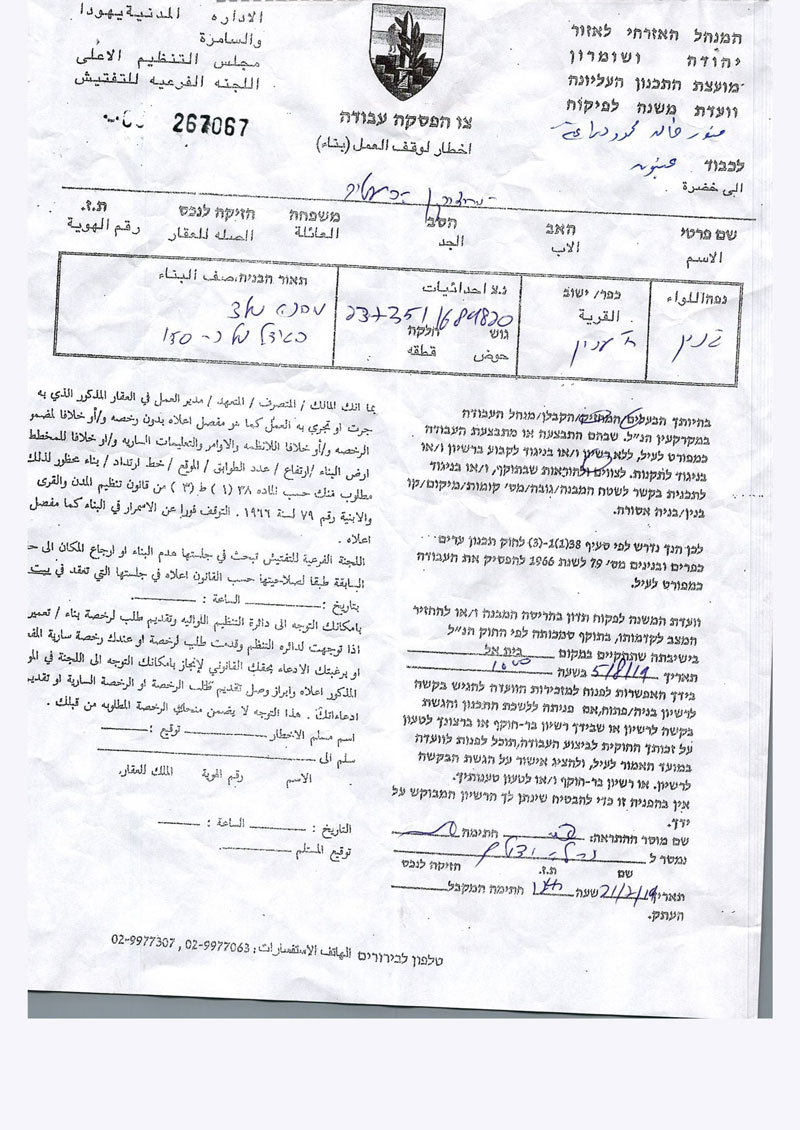 המנהל האזרחי לאזור
יהודה ושומרון
מועצת התכנון העליונה
וועדת משנה לפיקוח
לכבוד
الى خضرة
الاداره المدنية يهودا
والسامرة
مجلس التنظيم الاعلى
اللجنه الفرعيه للتفتيش
267067
צו הפסקה עבודה
اخطار لوقف العمل (بناء)
שם פרטי האב הסב משפחה חזיקה לנכס ת.ז.
الاسم الاب الجد العائلة الصله للعقار رقم الهوية
נפה اللواء כפר/ ישוב נ.צ احداثيات תאור הבניה، صف البناء
القرية
גוש חלקה
حوض قطقه
ג'נין
237351/684820
בהיותך הבעלים/המחזיק/הקבלן/מנהל העבודה
במקרקעין הנ"ל. שבהם התבצעה או מתבצעת העבודה
כמפורט לעיל, ללא רשיון ו/או בניגוד לקבוע ברשיון ו/או
בניגוד לתקנות. לצווים ולהוראות שבתוקף, ו/או בניגוד
לתכנית בקשר לשטח המבנה/גובה/מס' קומות/מיקום/קו
בנין/בניה אסורה.
לכן הנך נדרש לפי סעיף 38(1)-(3) לחוק תכנון ערים
כפרים ובנינים מס' 79 לשנת 1966 להפסיק את העבודה
כמפורט לעיל.
וועדת המשנה לפקוח תדון בהריסת המבנה ו/או להחזיר
המצב לקדמותו, בתוקף סמכותה לפי החוק הנ"ל
בישיבתה שתתקיים במקום בית אל
תאריך 5/8/19 בשעה 1000
בידך האפשרות לפנות למזכירות הוועדה להגיש בקשה
לרשיון בניה/פתוח, אם פניתה ללשכת התכנון והגשת
בקשה לרשיון או שבידך רשיון בר-תוקף או ברצונך לטעון
על זכותך החוקית לביצוע העבודה, תוכל לפנות לוועדה
במועד האמור לעיל, ולהציג אישור על הגשת הבקשה
לרשיון. או רשיון בר-תוקף ו/או לטעון טענותיך.
אין בהפניה זו כדי להבטיח שינתן לך הרשיון המבוקש על
ידך.
שם מוסר ההתראה: חתימה
נמסר ל
שם ת.ז. חזיקה לנכס
תאריך 21/7/19 שעה חתימת המקבל
העתק.
بما انك المالك / المتصرف / المتعهد / مدير العمل في العقار المذكور الذي به
جرت او تجري به العمل كما هو مفصل اعلاه بدون رخصه و/أو خلافا لمضمو
الرخصه و/أو خلافا للانظمه والاوامر والتعليمات الساريه و/او خلافا للمخطط
ارض البناء /ارتفاع / عدد الطوابق / الموقع / خط ارتداد / بناء محظور لذلك
مطلوب منك حسب المادة ٣٨ (١) ط (٣) من قانون تنظيم المدن والقرى
والابنية رقم ٧٩ لسنة ١٩٦٦ . التوقف فورا عن الاسمرار في البناء كما مفصل
اعلاه .
اللجنة الفرعية للتفتيش تبحث في جلستها هدم البناء او ارجاع المكان الى حـ
السابقة طبقا لصلاحيتها حسب القانون اعلاه في جلستها التي تعقد في بيت
بتاريخ : الساعة :
بامكانك التوجه الى دائرة التنظيم اللوائيه وتقديم طلب لرخصة بناء / تعمير
اذا توجهت لدائره التنظم وقدمت طلب لرخصة او عندك رخصة سارية المف
او برغبتك الادعاء بحقك القانوني لإنجاز بامكانك التوجه الى اللجنة في المو
المذكور اعلاه وإبراز وصل تقديم طلب الرخصة او الرخصة السارية او تقديم
ادعاءاتك . هذا التوجه لا يضمن منحك الرخصة المطلوبه من قبلك .
اسم مسلم الاخطار توقيع :
سلم الى
الاسم رقم الهوية الملك للعقار.
التاريخ : الساعة :
توقيع المستلم
טלפון לבירורים الهاتف الاستفسارات: 02-9977063 , 02-9977307